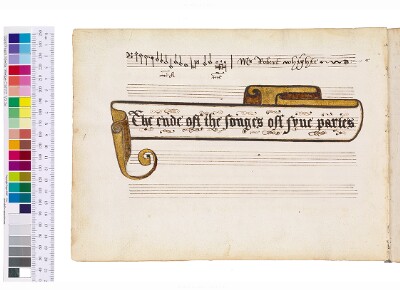 Mr Robert whyghte
The ende off the songes off fyue partes